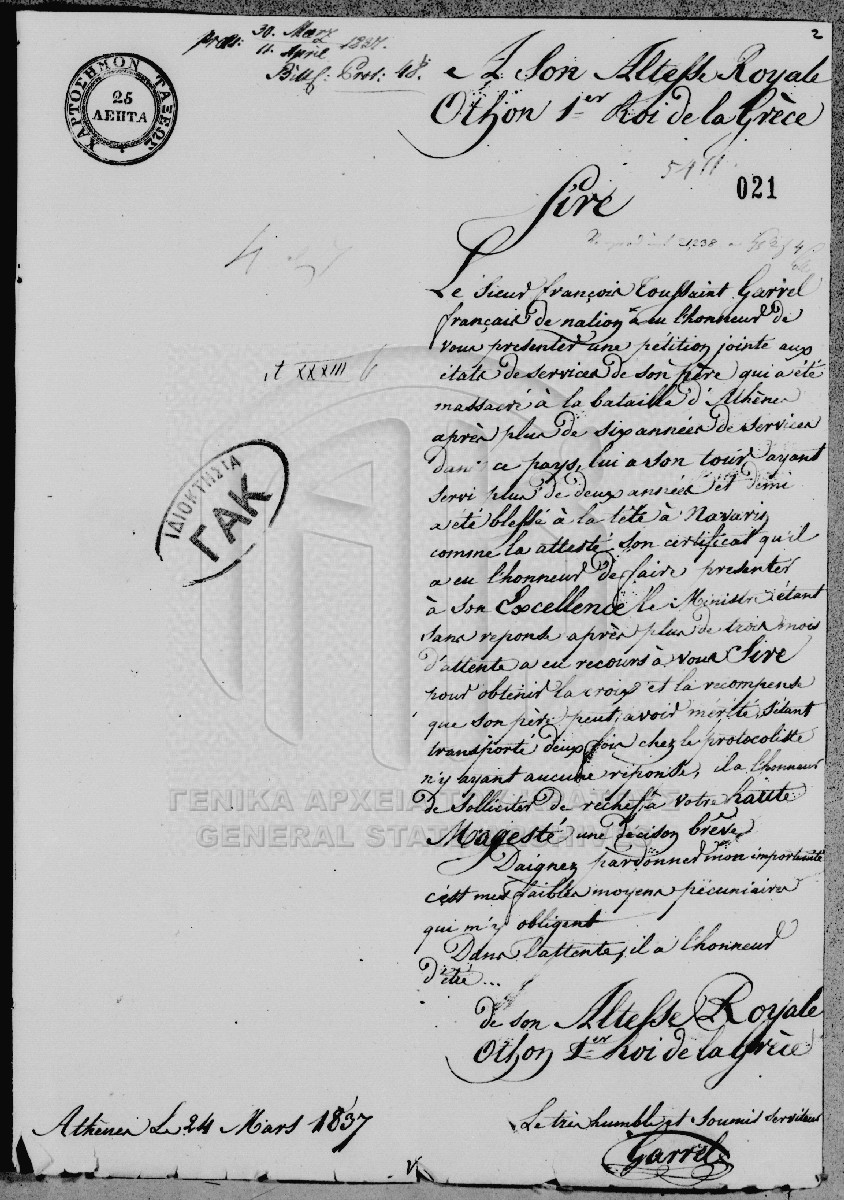 2
30. März
praes: 11. April 1837.
Bittf: Prot: 48.
ΧΑΡΤΟΣΗΜΟΝ ΤΑΞΕΩΣ
25
ΛΕΠΤΑ
A Son Altesse Royale
Othon 1er Roi de la Grèce
54
021
Sire
Le Sieur françois Toussaint Garrel
français de nation a eu l'honneur de
vous presenter une pétition jointe aux
états de services de son père qui a été
massacré à la bataille d'Athènes
après plus de six années de services
dans ce pays, lui a son tour ayant
servi plus de deux années et demi
a été blessé à la tête à Navarin
comme la atteste son certificat qu'il
a eu l'honneur de faire presenter
à son Excellence le Ministre, étant
sans reponse après plus de trois mois
d'attente a eu recours à vous Sire
pour obtenir la croix et la recompense
que son père peut avoir mérité, s'étant
transporté deux fois chez le protocoliste
n'y ayant aucune réponse, il a l'honneur
de solliciter de rechef, a votre haute
Magesté une decison brève,
Daignez pardonner mon importunité
c'est mes faibles moyens pécuniaires
qui m'y obligent
Dans l'attente, il a l'honneur
d'être...
de son Altesse Royale
Othon 1er Roi de la Grèce
Le très humble et soumis serviteur
Garrel
Athènes Le 24 Mars 1837
XXXIII
ΙΔΙΟΚΤΗΣΙΑ
ΓΑΚ
ΓΕΝΙΚΑ ΑΡΧΕΙΑ ΤΟΥ ΚΡΑΤΟΥΣ
GENERAL STATE ARCHIVES